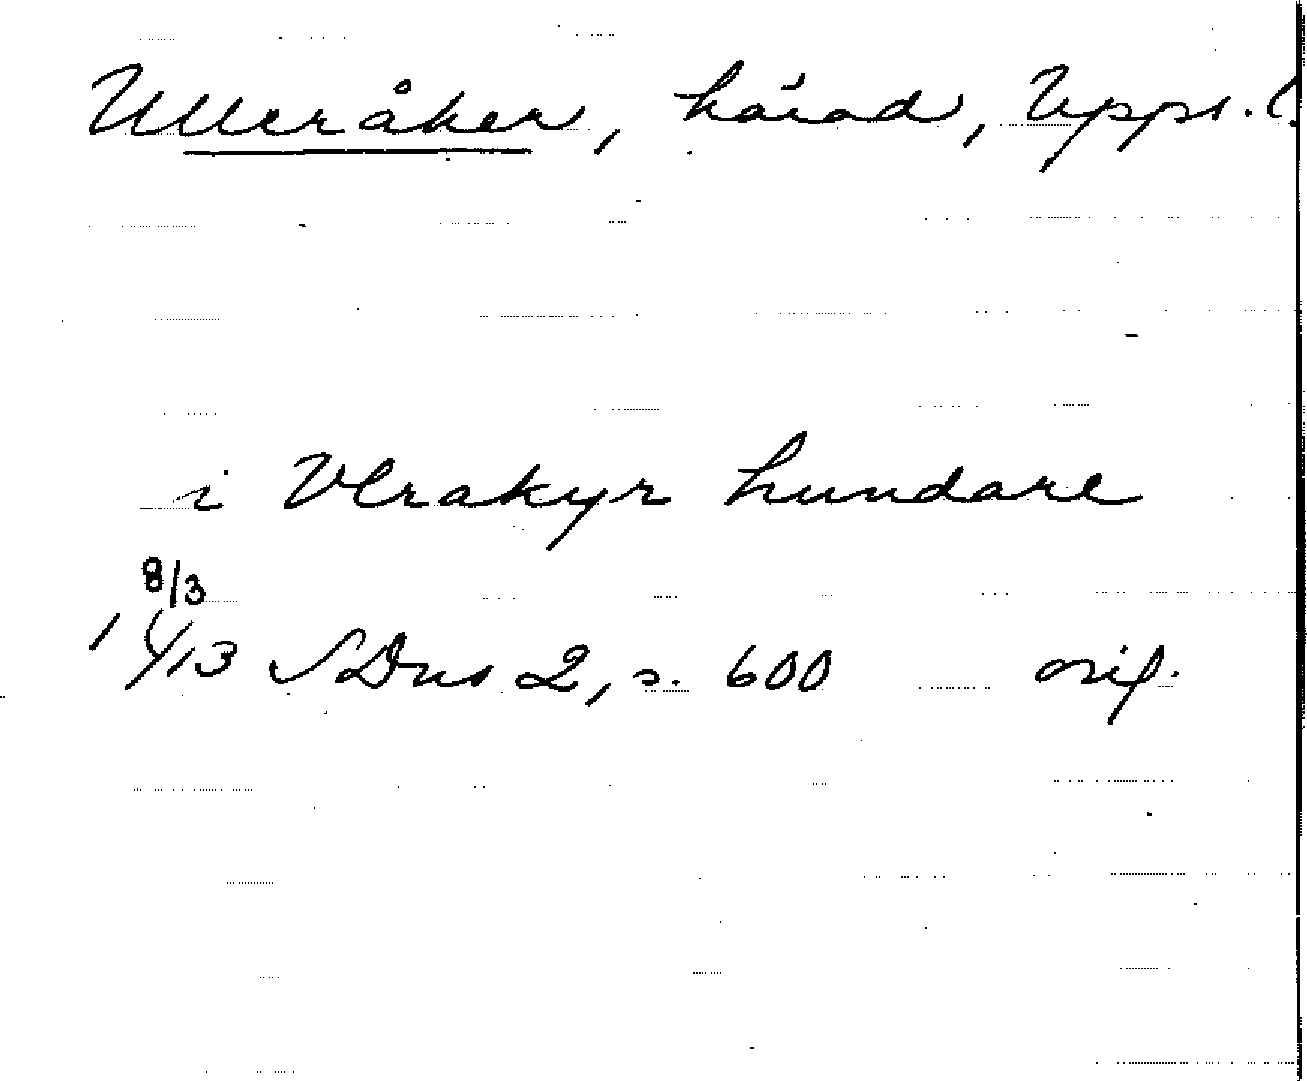 Ulleråker, härad, Upps. l.
i Vlrakyr hundare
8/3
1413 SDns 2, s. 600 orig.